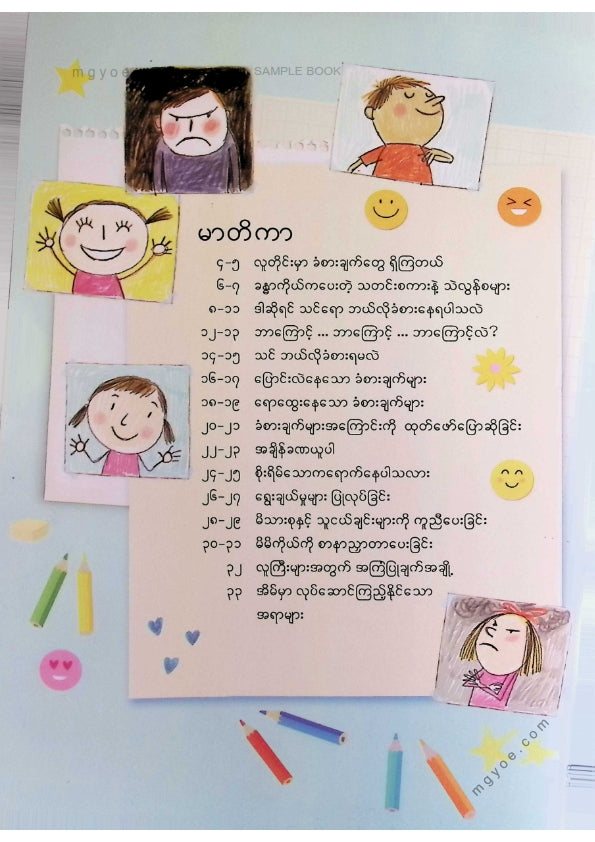 mgyoe
SAMPLE BOOK
မာတိကာ
၄-၅ လူတိုင်းမှာ ခံစားချက်တွေ ရှိကြတယ်
၆-၇ ခန္ဓာကိုယ်ကပေးတဲ့ သတင်းစကားနဲ့ သဲလွန်စများ
၈-၁၁ ဒါဆိုရင် သင်ရော ဘယ်လိုခံစားနေရပါသလဲ
၁၂-၁၃ ဘာကြောင့် ... ဘာကြောင့် ... ဘာကြောင့်လဲ?
၁၄-၁၅ သင် ဘယ်လိုခံစားရမလဲ
၁၆-၁၇ ပြောင်းလဲနေသော ခံစားချက်များ
၁၈-၁၉ ရောထွေးနေသော ခံစားချက်များ
၂၀-၂၁ ခံစားချက်များအကြောင်းကို ထုတ်ဖော်ပြောဆိုခြင်း
၂၂-၂၃ အချိန်ခဏယူပါ
၂၄-၂၅ စိုးရိမ်သောကရောက်နေပါသလား
၂၆-၂၇ ရွေးချယ်မှုများ ပြုလုပ်ခြင်း
၂၈-၂၉ မိသားစုနှင့် သူငယ်ချင်းများကို ကူညီပေးခြင်း
၃၀-၃၁ မိမိကိုယ်ကို စာနာညှာတာပေးခြင်း
၃၂ လူကြီးများအတွက် အကြံပြုချက်အချို့
၃၃ အိမ်မှာ လုပ်ဆောင်ကြည့်နိုင်သော
အရာများ
mgyoe.com